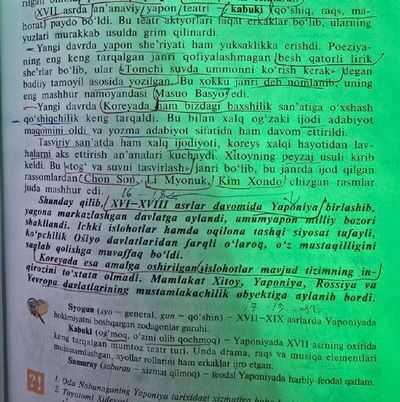 XVII asrda an'anaviy yapon teatri kabuki (qo'shiq, raqs, ma-
horat) paydo bo'ldi. Bu teatr aktyorlari faqat erkaklar bo'lib, ularning
yuzlari murakkab usulda grim qilinardi.
Yangi davrda yapon she'riyati ham yuksaklikka erishdi. Poeziya-
ning eng keng tarqalgan janri qofiyalashmagan besh qatorli lirik
she'rlar bo'lib, ular «Tomchi suvda ummonni ko'rish kerak» degan
badiiy tamoyil asosida yozilgan. Bu xokku janri deb nomlanib, uning
eng mashhur namoyandasi Masuo Basyo edi.
Yangi davrda Koreyada ham bizdagi baxshilik san'atiga o'xshash
qo'shiqchilik keng tarqaldi. Bu bilan xalq og'zaki ijodi adabiyot
maqomini oldi va yozma adabiyot sifatida ham davom ettirildi.
Tasviriy san'atda ham xalq ijodiyoti, koreys xalqi hayotidan lav-
halarni aks ettirish an'analari kuchaydi. Xitoyning peyzaj usuli kirib
keldi. Bu «tog' va suvni tasvirlash» janri bo'lib, bu janrda ijod qilgan
rassomlardan Chon Son, Li Myonuk, Kim Xondo chizgan rasmlar
juda mashhur edi.
16 18
Shunday qilib, XVI–XVIII asrlar davomida Yaponiya birlashib,
yagona markazlashgan davlatga aylandi, umumyapon milliy bozori
shakllandi. Ichki islohotlar hamda oqilona tashqi siyosat tufayli,
ko'pchilik Osiyo davlatlaridan farqli o'laroq, o'z mustaqilligini
saqlab qolishga muvaffaq bo'ldi.
Koreyada esa amalga oshirilgan islohotlar mavjud tizimning in-
qirozini to'xtata olmadi. Mamlakat Xitoy, Yaponiya, Rossiya va
Yevropa davlatlarining mustamlakachilik obyektiga aylanib bordi.
Syogun (syo – general, gun – qo'shin) – XVII–XIX asrlarda Yaponiyada
hokimiyatni boshqargan zodagonlar guruhi.
Kabuki (og'moq, o'zini olib qochmoq) – Yaponiyada XVII asrning oxirida
keng tarqalgan mumtoz teatr turi. Unda drama, raqs va musiqa elementlari
mujassamlashgan, ayollar rollarini ham erkaklar ijro etgan.
Samuray (saburau – xizmat qilmoq) – feodal Yaponiyada harbiy-feodal qatlam.
?!
1. Oda Nobunaganing Yaponiya tarixidagi xizmatlari
2. Toyotomi